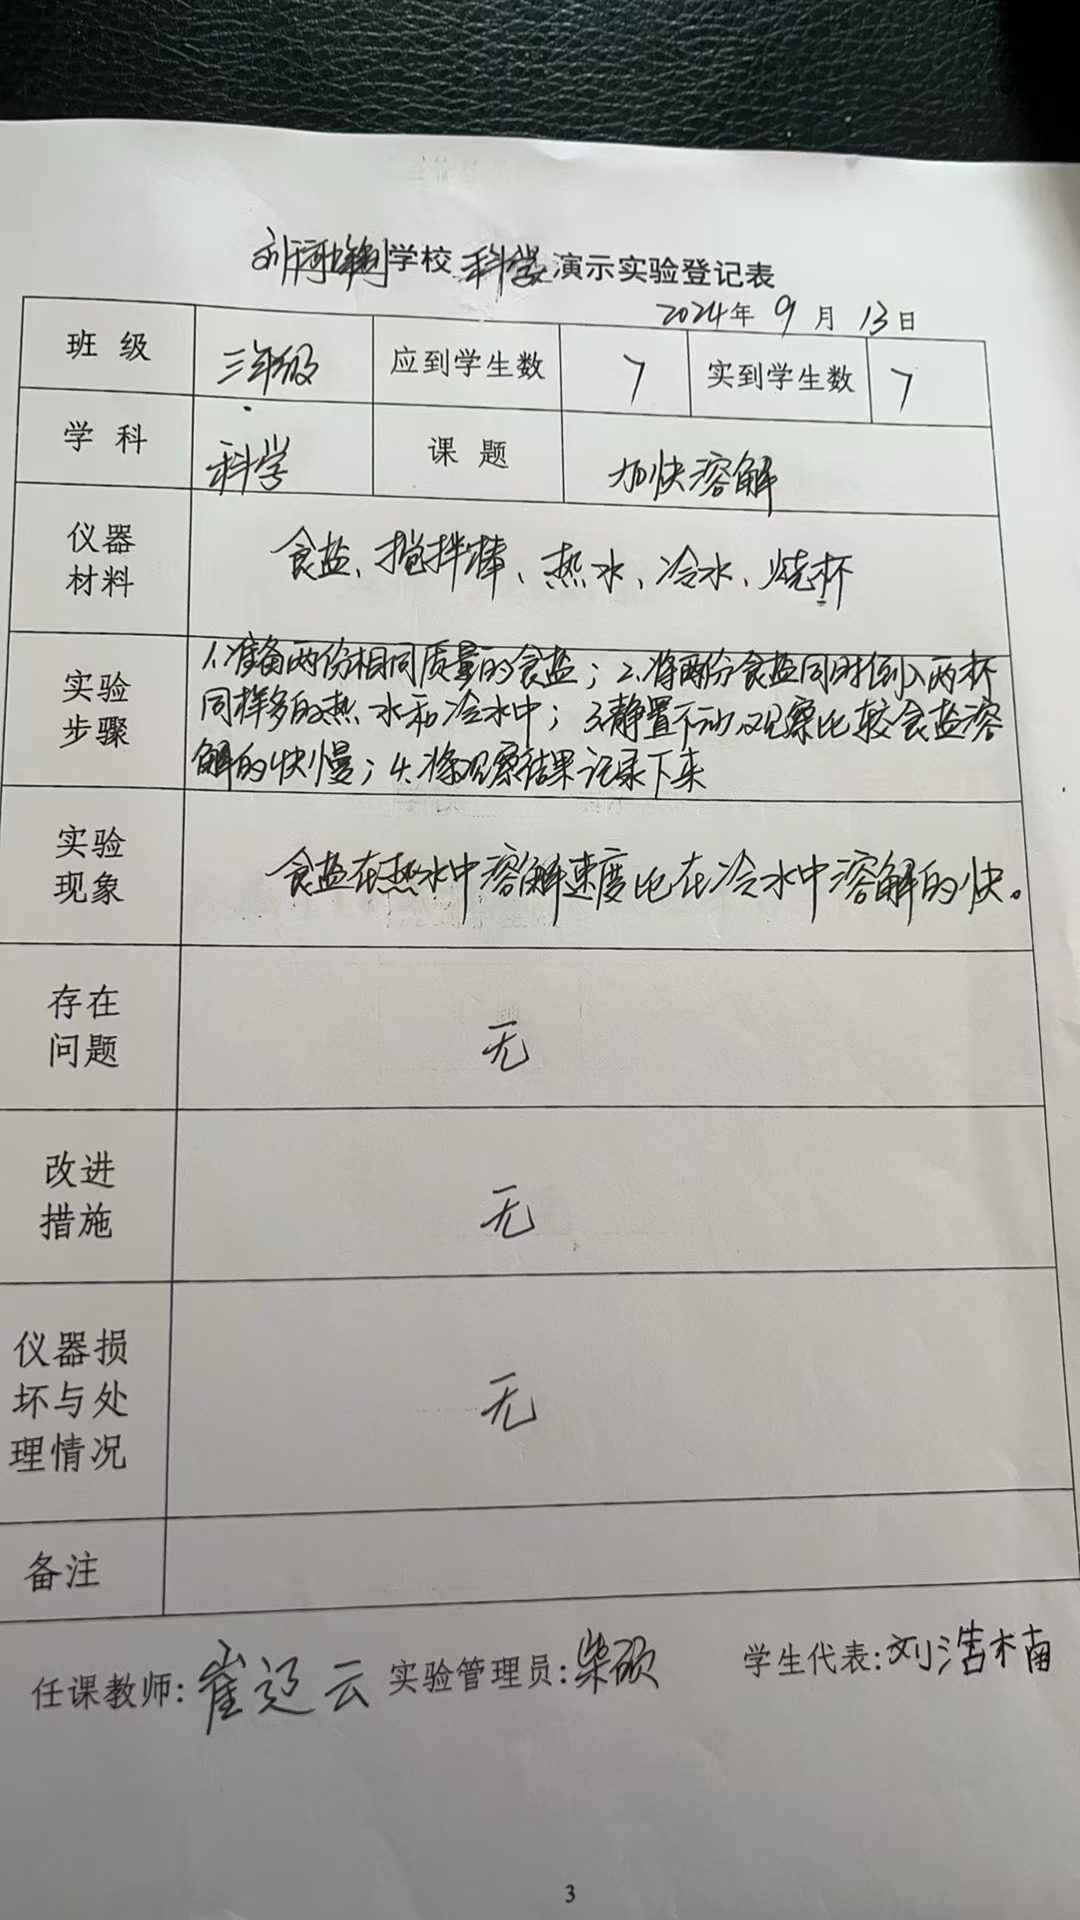 学校 科学 演示实验登记表
2024年 9 月 13 日
班 级 三年级 应到学生数 7 实到学生数 7
学 科 科学 课 题 加快溶解
仪器 食盐、搅拌棒、热水、冷水、烧杯
材料
实验 1.准备两份相同质量的食盐；2.将两份食盐同时倒入两杯
步骤 同样多的热水和冷水中；3.静置不动观察比较食盐溶
解的快慢；4.将观察结果记录下来
实验 食盐在热水中溶解速度比在冷水中溶解的快。
现象
存在 无
问题
改进 无
措施
仪器损
坏与处 无
理情况
备注
任课教师：崔迎云 实验管理员：柴硕 学生代表：刘浩楠
3